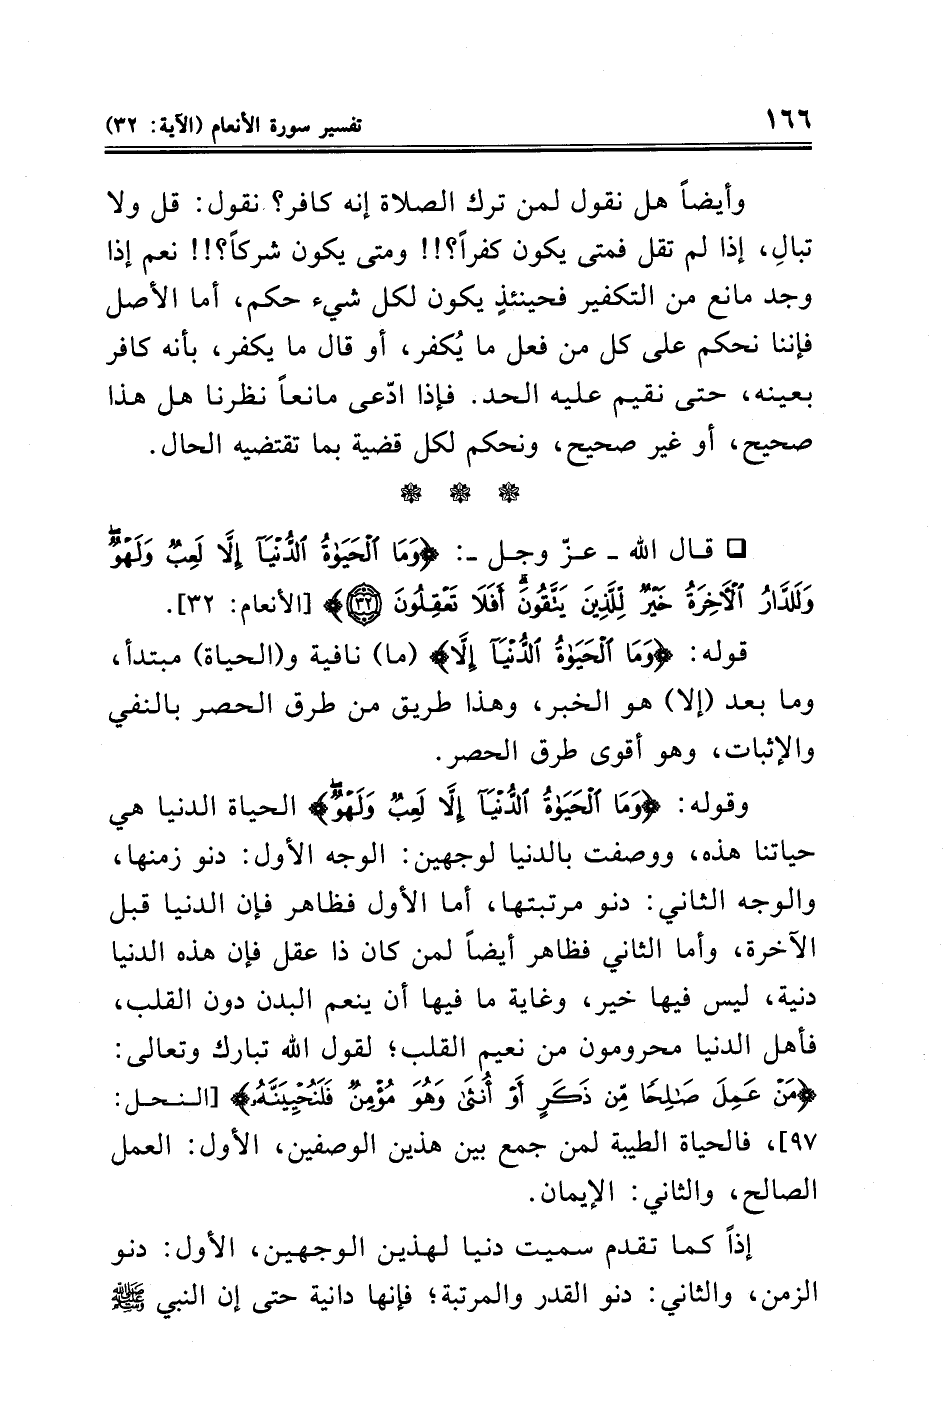 ١٦٦
تفسير سورة الأنعام (الآية: ٣٢)
وأيضاً هل نقول لمن ترك الصلاة إنه كافر؟ نقول: قل ولا
تبالِ، إذا لم تقل فمتى يكون كفراً؟!! ومتى يكون شركاً؟!! نعم إذا
وجد مانع من التكفير فحينئذٍ يكون لكل شيء حكم، أما الأصل
فإننا نحكم على كل من فعل ما يُكفر، أو قال ما يكفر، بأنه كافر
بعينه، حتى نقيم عليه الحد. فإذا ادّعى مانعاً نظرنا هل هذا
صحيح، أو غير صحيح، ونحكم لكل قضية بما تقتضيه الحال.
❁ ❁ ❁
❏ قال الله ـ عزّ وجل ـ: ﴿وَمَا ٱلْحَيَوٰةُ ٱلدُّنْيَآ إِلَّا لَعِبٌ وَلَهْوٌ ۖ
وَلَلدَّارُ ٱلْأَخِرَةُ خَيْرٌ لِّلَّذِينَ يَتَّقُونَ ۗ أَفَلَا تَعْقِلُونَ ٣٢﴾ [الأنعام: ٣٢].
قوله: ﴿وَمَا ٱلْحَيَوٰةُ ٱلدُّنْيَآ إِلَّا﴾ (ما) نافية و(الحياة) مبتدأ،
وما بعد (إلا) هو الخبر، وهذا طريق من طرق الحصر بالنفي
والإثبات، وهو أقوى طرق الحصر.
وقوله: ﴿وَمَا ٱلْحَيَوٰةُ ٱلدُّنْيَآ إِلَّا لَعِبٌ وَلَهْوٌ ۖ﴾ الحياة الدنيا هي
حياتنا هذه، ووصفت بالدنيا لوجهين: الوجه الأول: دنو زمنها،
والوجه الثاني: دنو مرتبتها، أما الأول فظاهر فإن الدنيا قبل
الآخرة، وأما الثاني فظاهر أيضاً لمن كان ذا عقل فإن هذه الدنيا
دنية، ليس فيها خير، وغاية ما فيها أن ينعم البدن دون القلب،
فأهل الدنيا محرومون من نعيم القلب؛ لقول الله تبارك وتعالى:
﴿مَنْ عَمِلَ صَـٰلِحًا مِّن ذَكَرٍ أَوْ أُنثَىٰ وَهُوَ مُؤْمِنٌ فَلَنُحْيِيَنَّهُۥ﴾ [النحل:
٩٧]، فالحياة الطيبة لمن جمع بين هذين الوصفين، الأول: العمل
الصالح، والثاني: الإيمان.
إذاً كما تقدم سميت دنيا لهذين الوجهين، الأول: دنو
الزمن، والثاني: دنو القدر والمرتبة؛ فإنها دانية حتى إن النبي ﷺ